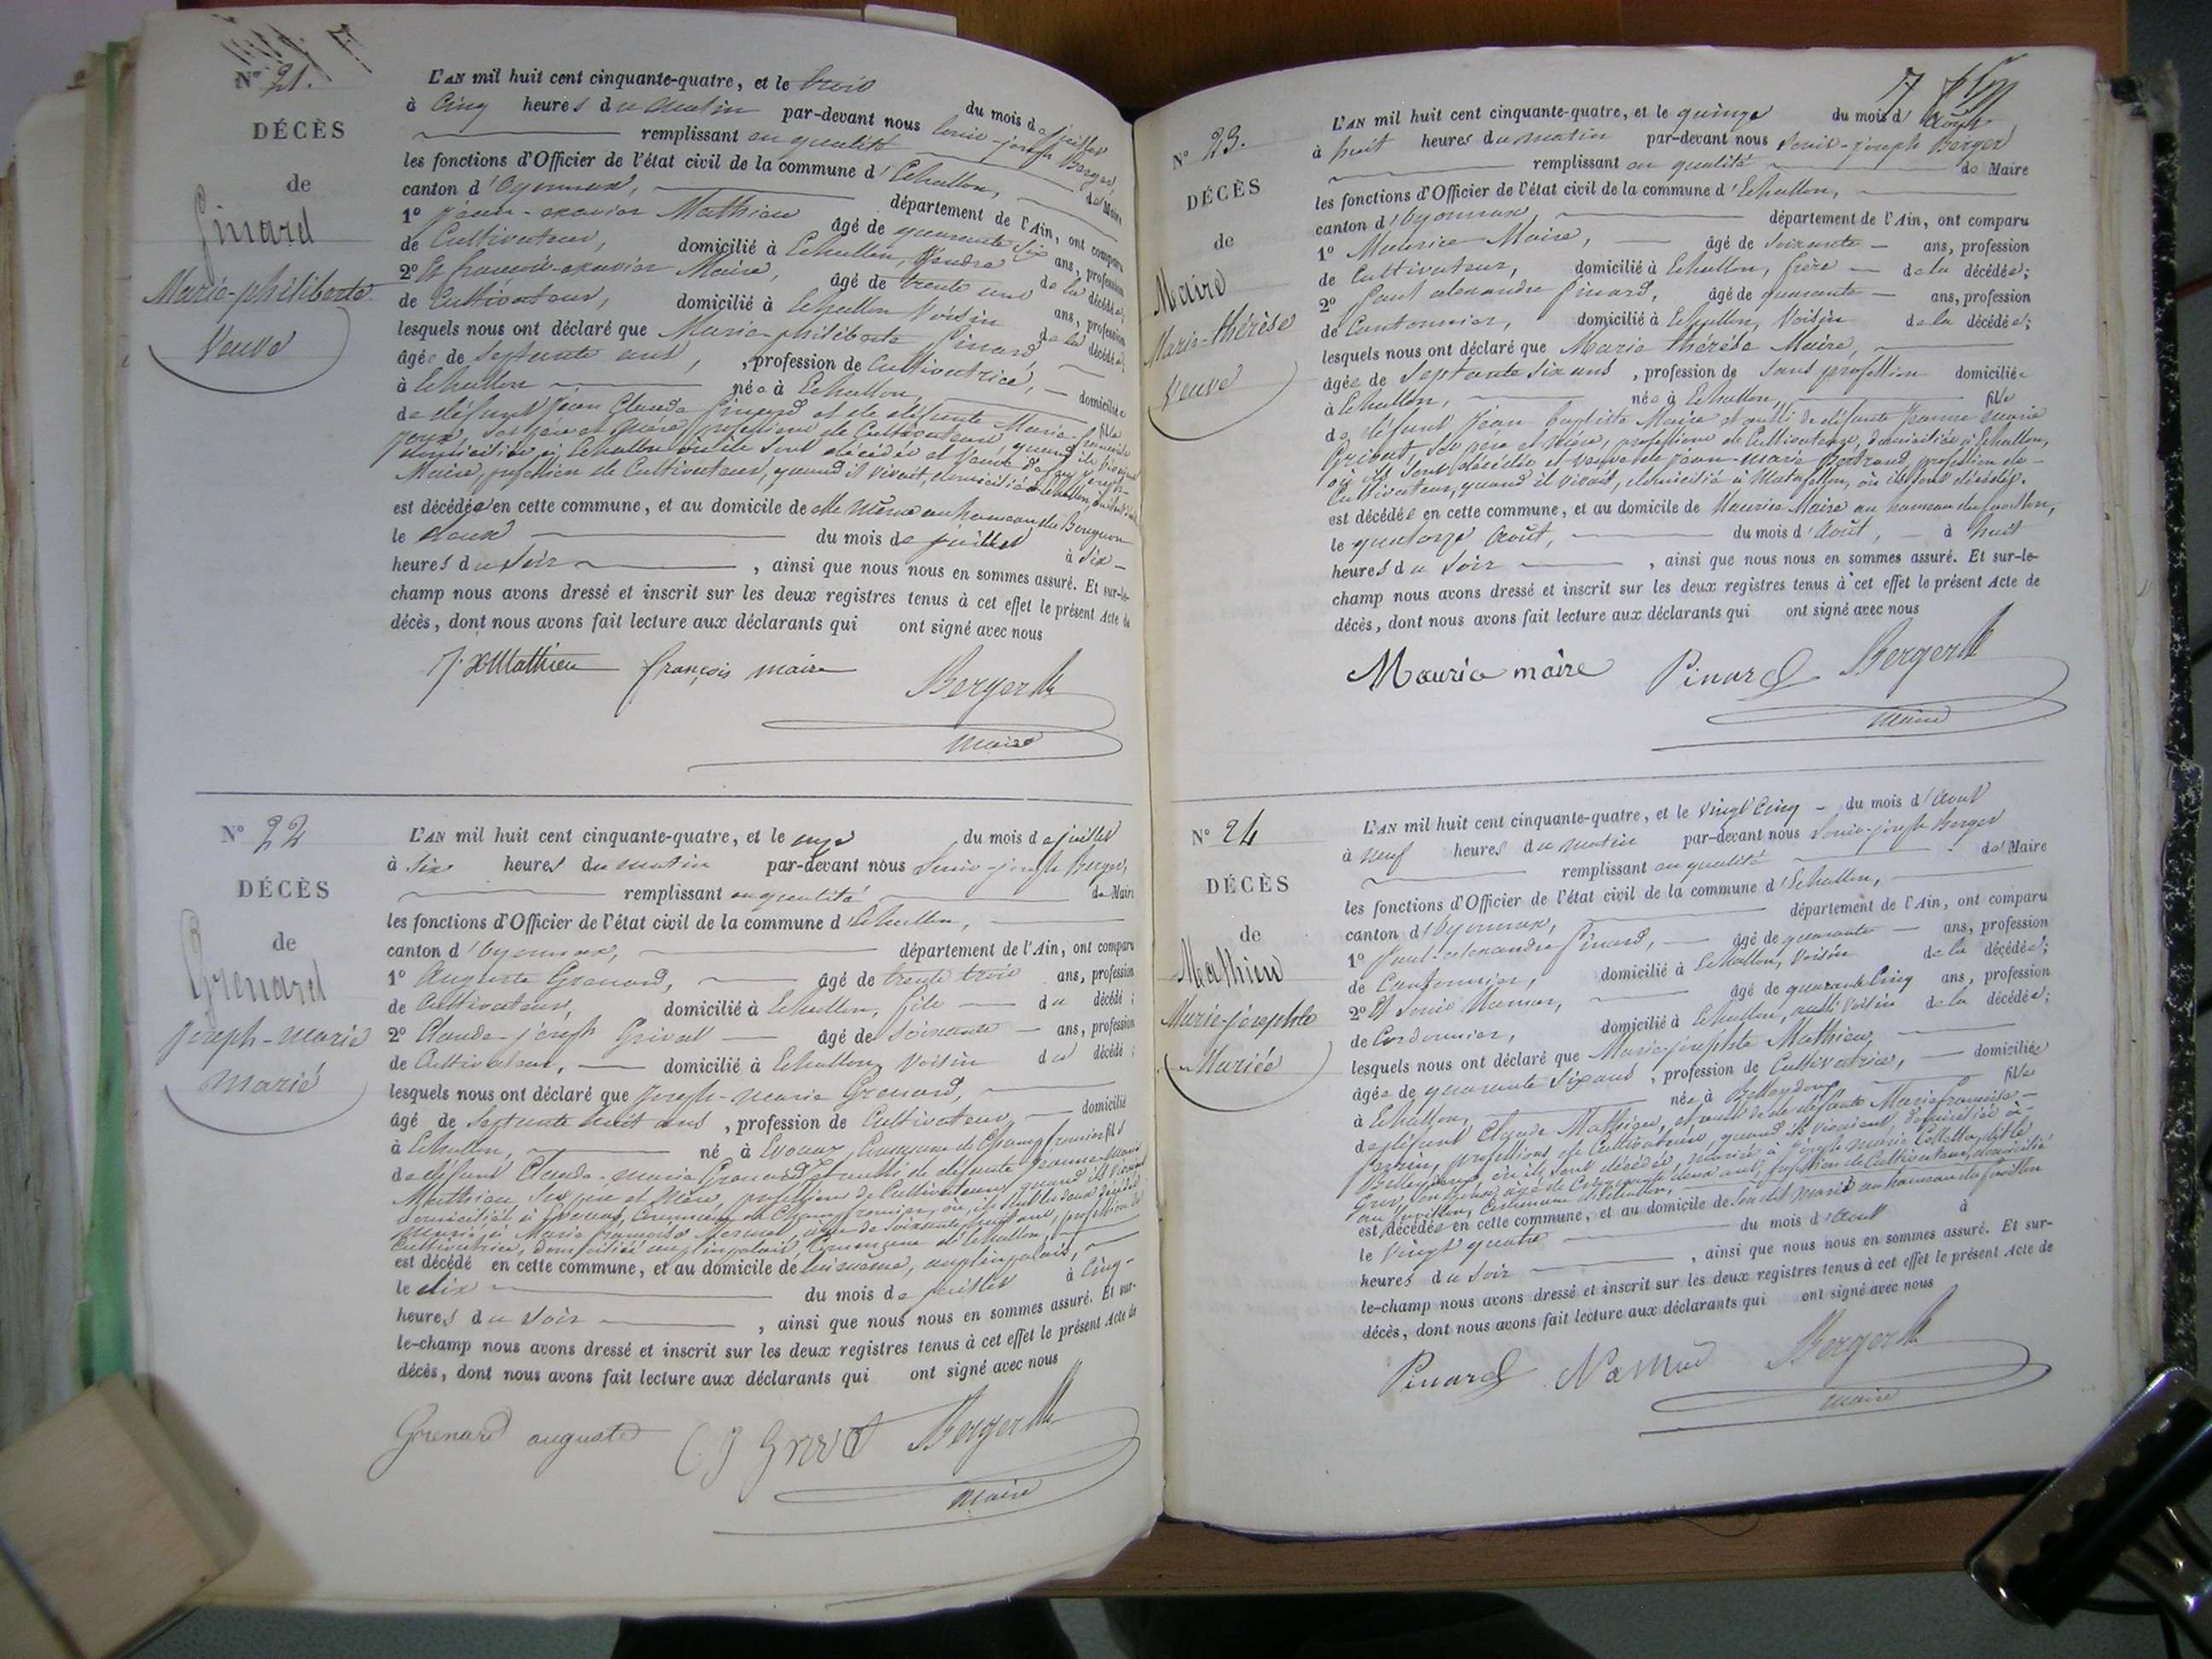 N° 21.
DÉCÈS
de
Pinard
Marie-philiberte
Veuve
L'AN mil huit cent cinquante-quatre, et le trois du mois de juillet
à Cinq heures du matin par-devant nous Louis-joseph Berger,
remplissant en qualité de Maire
les fonctions d'Officier de l'état civil de la commune d'Echallon,
canton d'Oyonnax, département de l'Ain, ont comparu
1° Jean-exavier Mathieu âgé de quarante six ans, profession
de Cultivateur, domicilié à Echallon, Gendre de la décédée;
2° Et françois-exavier Maire, âgé de trente une ans, profession
de Cultivateur, domicilié à Echallon Voisin de la décédée;
lesquels nous ont déclaré que Marie philiberte Pinard
âgée de Septante ans, , profession de Cultivatrice, domiciliée
à Echallon née à Echallon, fille
de défunt Jean Claude Pinard et de défunte Marie-françoise
Joux, Ses père et Mère, professions de Cultivateurs, quand ils vivaient
domiciliés à Echallon où ils Sont décédés et Veuve de Joseph
Maire, profession de Cultivateur, quand il vivait, domicilié à Echallon,
est décédée en cette commune, et au domicile de elle même au hameau du
le deux du mois de juillet à Six
heures du Soir , ainsi que nous nous en sommes assuré. Et sur-le-
champ nous avons dressé et inscrit sur les deux registres tenus à cet effet le présent Acte de
décès, dont nous avons fait lecture aux déclarants qui ont signé avec nous
J. X Mathieu françois maire Berger
Maire
N° 22
DÉCÈS
de
Grenard
joseph-marie
Marié
L'AN mil huit cent cinquante-quatre, et le onze du mois de juillet
à Six heures du matin par-devant nous Louis-joseph Berger,
remplissant en qualité de Maire
les fonctions d'Officier de l'état civil de la commune d'Echallon,
canton d'Oyonnax, département de l'Ain, ont comparu
1° Auguste Grenard, âgé de trente trois ans, profession
de Cultivateur, domicilié à Echallon, fils du décédé;
2° Claude-joseph Grivat âgé de Soixante ans, profession
de Cultivateur, domicilié à Echallon, Voisin du décédé;
lesquels nous ont déclaré que joseph-marie Grenard,
âgé de Septante huit ans , profession de Cultivateur, domicilié
à Echallon, né à Evouaz, Commune de Champfromier fils
de défunt Claude-marie Grenard et aussi de défunte Jeanne-Marie
Mathieu, Ses père et Mère, professions de Cultivateurs quand ils vivaient
domiciliés à Evouaz, Commune de Champfromier, où ils Sont les deux décédés
Marié à Marie françoise âgée de Soixante huit ans, profession de
Cultivatrice, domiciliée Commune d'Echallon,
est décédé en cette commune, et au domicile de lui même,
le dix du mois de juillet à Cinq
heures du Soir , ainsi que nous nous en sommes assuré. Et sur-
le-champ nous avons dressé et inscrit sur les deux registres tenus à cet effet le présent Acte de
décès, dont nous avons fait lecture aux déclarants qui ont signé avec nous
Grenard auguste C J Grivat Berger
Maire
7
N° 23.
DÉCÈS
de
Maire
Marie-thérèse
Veuve
L'AN mil huit cent cinquante-quatre, et le quinze du mois d'Août
à huit heures du matin par-devant nous Louis-joseph Berger
remplissant en qualité de Maire
les fonctions d'Officier de l'état civil de la commune d'Echallon,
canton d'Oyonnax, département de l'Ain, ont comparu
1° Maurice Maire, âgé de Soixante ans, profession
de Cultivateur, domicilié à Echallon, frère de la décédée;
2° Paul alexandre Pinard, âgé de quarante ans, profession
de Cantonnier, domicilié à Echallon, Voisin de la décédée;
lesquels nous ont déclaré que Marie thérèse Maire,
âgée de Septante Six ans , profession de Sans profession domiciliée
à Echallon, née à Echallon, fille
de défunt Jean Baptiste Maire et aussi de défunte Jeanne Marie
Grivat, Ses père et Mère, professions de Cultivateurs, domiciliés à Echallon,
où ils Sont décédés et Veuve de Jean-marie Bertrand profession de
Cultivateur, quand il vivait, domicilié à Matafellon, où il est décédé.
est décédée en cette commune, et au domicile de Maurice Maire au hameau du favillon,
le quatorze Août, du mois d'Août, à huit
heures du Soir , ainsi que nous nous en sommes assuré. Et sur-le-
champ nous avons dressé et inscrit sur les deux registres tenus à cet effet le présent Acte de
décès, dont nous avons fait lecture aux déclarants qui ont signé avec nous
Mauric maire Pinard Berger
Maire
N° 24
DÉCÈS
de
Mathieu
Marie-josephte
Mariée
L'AN mil huit cent cinquante-quatre, et le vingt Cinq du mois d'Août
à neuf heures du matin par-devant nous Louis-joseph Berger
remplissant en qualité de Maire
les fonctions d'Officier de l'état civil de la commune d'Echallon,
canton d'Oyonnax, département de l'Ain, ont comparu
1° Paul-alexandre Pinard, âgé de quarante ans, profession
de Cantonnier, domicilié à Echallon, Voisin de la décédée;
2° Et Louis Namur, âgé de quarante Cinq ans, profession
de Cordonnier, domicilié à Echallon, aussi Voisin de la décédée;
lesquels nous ont déclaré que Marie-josephte Mathieu,
âgée de quarante Six ans , profession de Cultivatrice, domiciliée
à Echallon, née à Belleydoux fille
de défunt Claude Mathieu, et aussi de défunte Marie françoise
Perrin, professions de Cultivateurs, quand ils vivaient, domiciliés à
Belleydoux, où ils Sont décédés, Mariée à joseph Marie Colletta, dit le
Gros, âgé de Cinquante deux ans, profession de Cultivateur, domicilié
au favillon, Commune d'Echallon,
est décédée en cette commune, et au domicile de Son dit Marié au hameau du favillon
le vingt quatre du mois d'Août à
heures du Soir , ainsi que nous nous en sommes assuré. Et sur-
le-champ nous avons dressé et inscrit sur les deux registres tenus à cet effet le présent Acte de
décès, dont nous avons fait lecture aux déclarants qui ont signé avec nous
Pinard Namur Berger
Maire